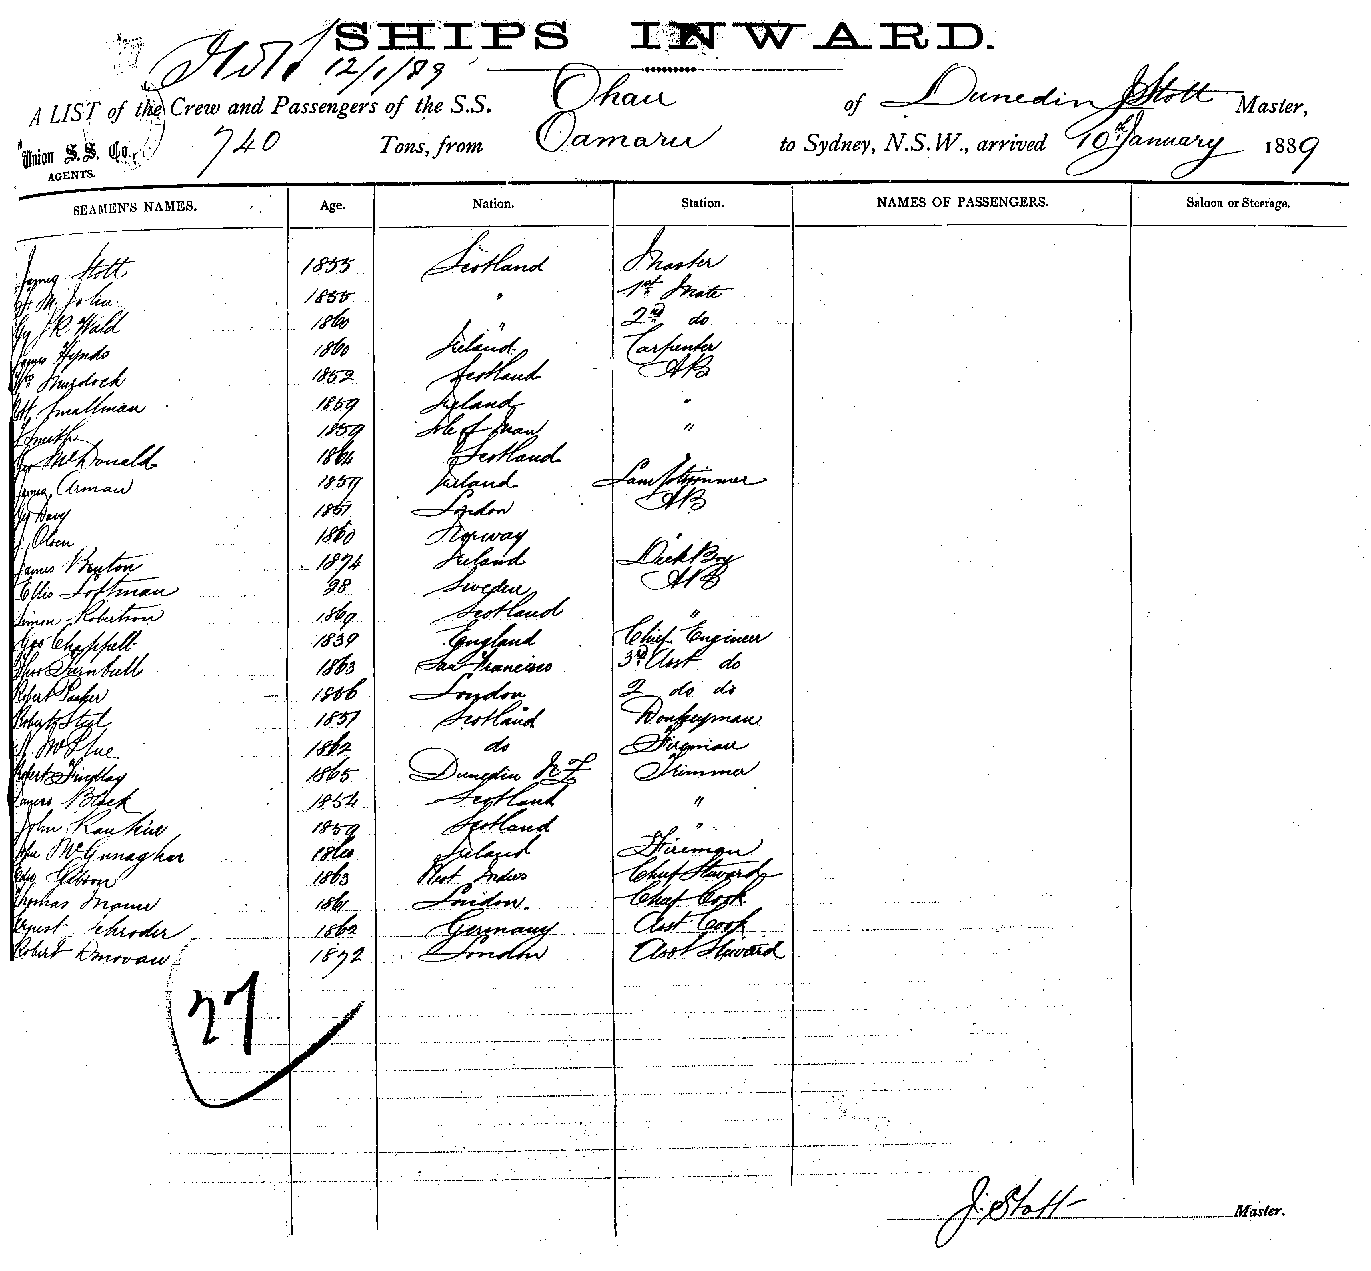 SHIPS INWARD.
12/1/89
A LIST of the Crew and Passengers of the S.S. Ohau of Dunedin J Stott Master,
Union S.S. Co. 740 Tons, from Oamaru to Sydney, N.S.W., arrived 10th January 1889
AGENTS.
SEAMEN'S NAMES. Age. Nation. Station. NAMES OF PASSENGERS. Saloon or Steerage.
James Stott 1855 Scotland Master
John 1855 " 1st Mate
J R Wald 1860 " 2nd do
James Hynds 1860 Ireland Carpenter
Wm Murdock 1852 Scotland AB
Smallman 1859 Ireland "
J Smith 1859 Isle of Man "
McDonald 1864 Scotland
James Arman 1859 Ireland Lamptrimmer
Davy 1851 London AB
J Olsen 1860 Norway
James Bruton 1874 Ireland Deck Boy
Ellis Loftman 28 Sweden AB
Simon Robertson 1869 Scotland "
Geo Chappell 1839 England Chief Engineer
Thos Turnbull 1863 San Francisco 3rd Asst do
Robert Parker 1856 London 2 do do
Robert Steel 1851 Scotland Donkeyman
McPhee 1862 do Fireman
Robert Findlay 1865 Dunedin NZ Trimmer
James Black 1854 Scotland "
John Rankin 1859 Scotland "
McGunagher 1860 Ireland Fireman
Gibson 1863 West Indies Chief Steward
Thomas Mann 1861 London. Chief Cook
August Schroder 1862 Germany Asst Cook
Robert Donovan 1872 London Asst Steward
27
J. Stott Master.